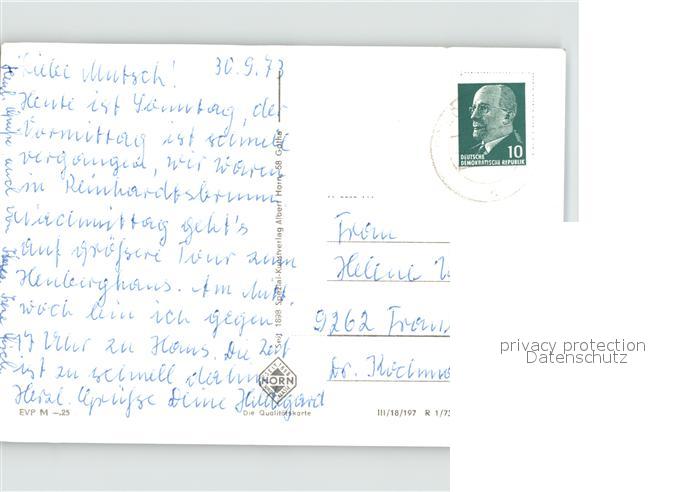 Liebe Mutsch! 30.9.73
Heute ist Sonntag, der
Vormittag ist schnell
vergangen, wir waren
in Reinhardtsbrunn
Nachmittag geht's
auf größere Tour zum
Heuberghaus. Am Mitt
woch bin ich gegen
17 Uhr zu Haus. Die Zeit
ist zu schnell dahin
Herzl. Grüße Deine Hildegard
Herzl. Grüße auch von
EVP M –.25
Seit 1898 Spezial-Kunstverlag Albert Horn, 58 Gotha
HORN
Die Qualitätskarte
III/18/197 R 1/73
10
DEUTSCHE
DEMOKRATISCHE REPUBLIK
Frau
Helene
9262 Fran
Dr. Kochma
privacy protection
Datenschutz